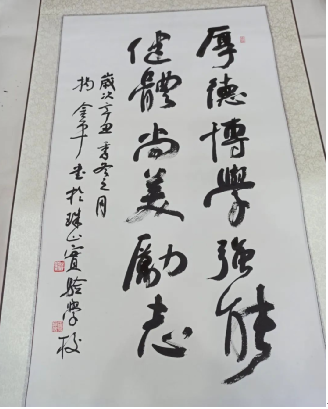 厚德博學強能
健體尚美勵志
歲次辛丑季冬之月
楊金平書於珠山實驗學校